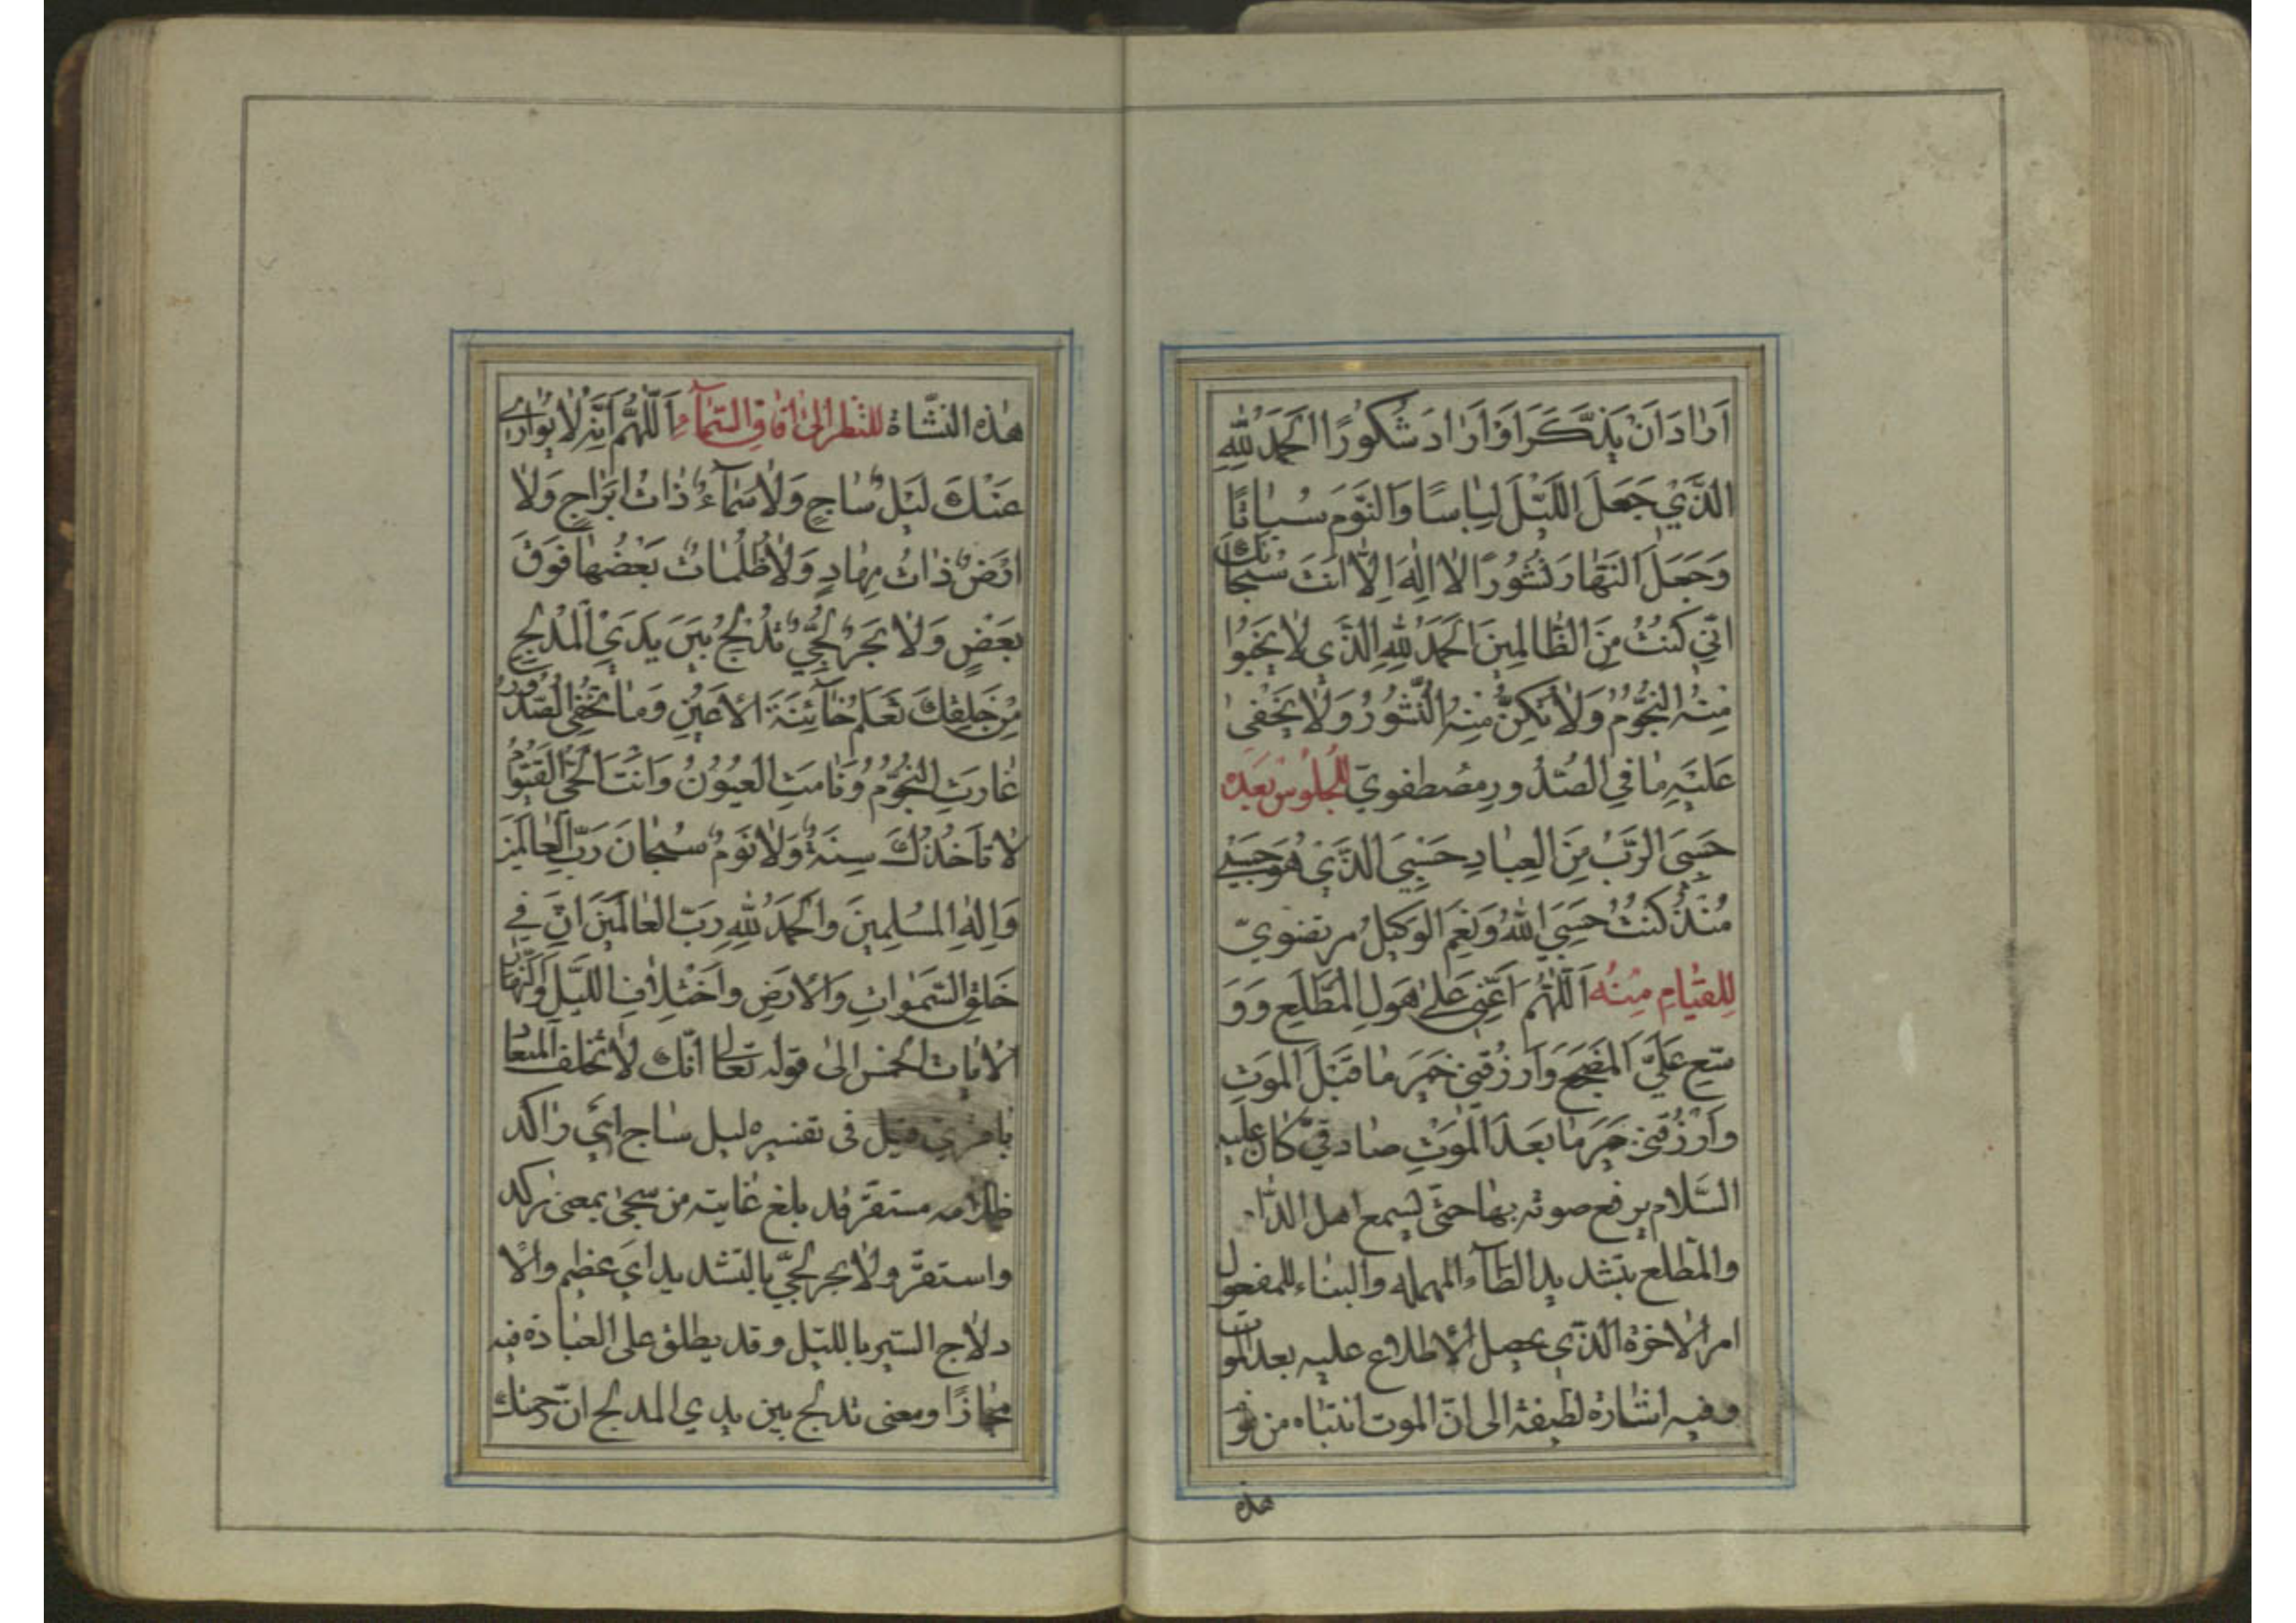 اَرٰادَ اَنْ يَذَّكَّرَ اَوْ اَرٰادَ شُكُورًا اَلْحَمْدُ لِلّٰهِ
الَّذَيْ جَعَلَ اللَّيْلَ لِبٰاسًا وَالنَّوْمَ سُبٰاتًا
وَجَعَلَ النَّهٰارَ نُشُورًا لٰا اِلٰهَ اِلّٰا اَنْتَ سُبْحٰانَكَ
اِنّي كُنْتُ مِنَ الظّٰالِمِينَ اَلْحَمْدُ لِلّٰهِ الَّذَي لٰا يَخْبُوا
مِنْهُ النُّجُومُ وَلٰا تَكِنُّ مِنْهُ السُّتُورُ وَلٰا يَخْفىٰ
عَلَيْهِ مٰا فِي الصُّدُورِ مصطفويّ لِلْجُلُوسْ بَعْدَه
حَسْبِيَ الرَّبُّ مِنَ الْعِبٰادِ حَسْبِيَ الَّذَيْ هُوَ حَسْبي
مُنْذُ كُنْتُ حَسْبِيَ اللّٰهُ وَنِعْمَ الْوَكيلُ مرتضويّ
لِلقيٰامِ مِنْهُ اَللّٰهُمَّ اَعِنّي عَلىٰ هَوْلِ الْمُطَّلَعِ وَ وَ
سِّعْ عَلَيَّ الْمَضْجَعَ وَارْزُقْني خَيْرَ مٰا قَبْلَ الْمَوْتِ
وَارْزُقْني خَيْرَ مٰا بَعْدَ الْمَوْتِ صٰادقيّ كٰان عليه
السَّلام يرفع صوته بهٰا حتّى يسمع اهل الدّٰار
والمطّلع بتشديد الطّآء المهملة والبنٰاء للمفعول
امر الاخرة الّذي يحصل الاطلاع عليه بعد الموت
وفيه اشٰارة لطيفة الى انّ الموت انتبٰاه من نو
هذه
هٰذه النشّاة للنّظر الىٰ اٰفٰاقِ السَّمٰآءِ اَللّٰهُمَّ اِنَّهُ لٰا يُوٰاري
عَنْكَ لَيْلٌ سٰاجٍ وَلٰا سَمٰآءٌ ذٰاتُ اَبْرٰاجٍ وَلٰا
اَرْضٌ ذٰاتُ مِهٰادٍ وَلٰا ظُلُمٰاتٌ بَعْضُهٰا فَوْقَ
بَعْضٍ وَلٰا بَحْرٌ لُجِّيٌّ تُدْلِجُ بَيْنَ يَدَيِ الْمُدْلِجِ
مِنْ خَلْقِكَ تَعْلَمُ خٰآئِنَةَ الْاَعْيُنِ وَمٰا تُخْفِي الصُّدُورُ
غٰارَتِ النُّجُومُ وَنٰامَتِ الْعُيُونُ وَاَنْتَ الْحَيُّ الْقَيُّومُ
لٰا تَأخُذُكَ سِنَةٌ وَلٰا نَوْمٌ سُبْحٰانَ رَبِّ الْعٰالَمينَ
وَاِلٰهِ الْمُسْلِمِينَ وَالْحَمْدُ لِلّٰهِ رَبِّ الْعٰالَمينَ اِنَّ في
خَلْقِ السَّمٰوٰاتِ وَالْاَرْضِ وَاخْتِلٰافِ اللَّيْلِ وَالنَّهٰارِ
الْاٰيٰات الخمس الىٰ قوله تعالى انّك لٰا تخلف الميعٰاد
بٰاقريّ قيل فى تفسيره ليل سٰاج ايَ رٰاكد
ظلامه مستقرّ قد بلغ غٰايته من سجى بمعنى ركد
واستقرّ ولٰا بحر لجّيّ بالتشديد ايَ عظيم والا
دلاج السّير بالليل وقد يطلق على العبٰادة فيه
مجٰازًا ومعنى تدلج بين يدي المدلج انّ رحمتك